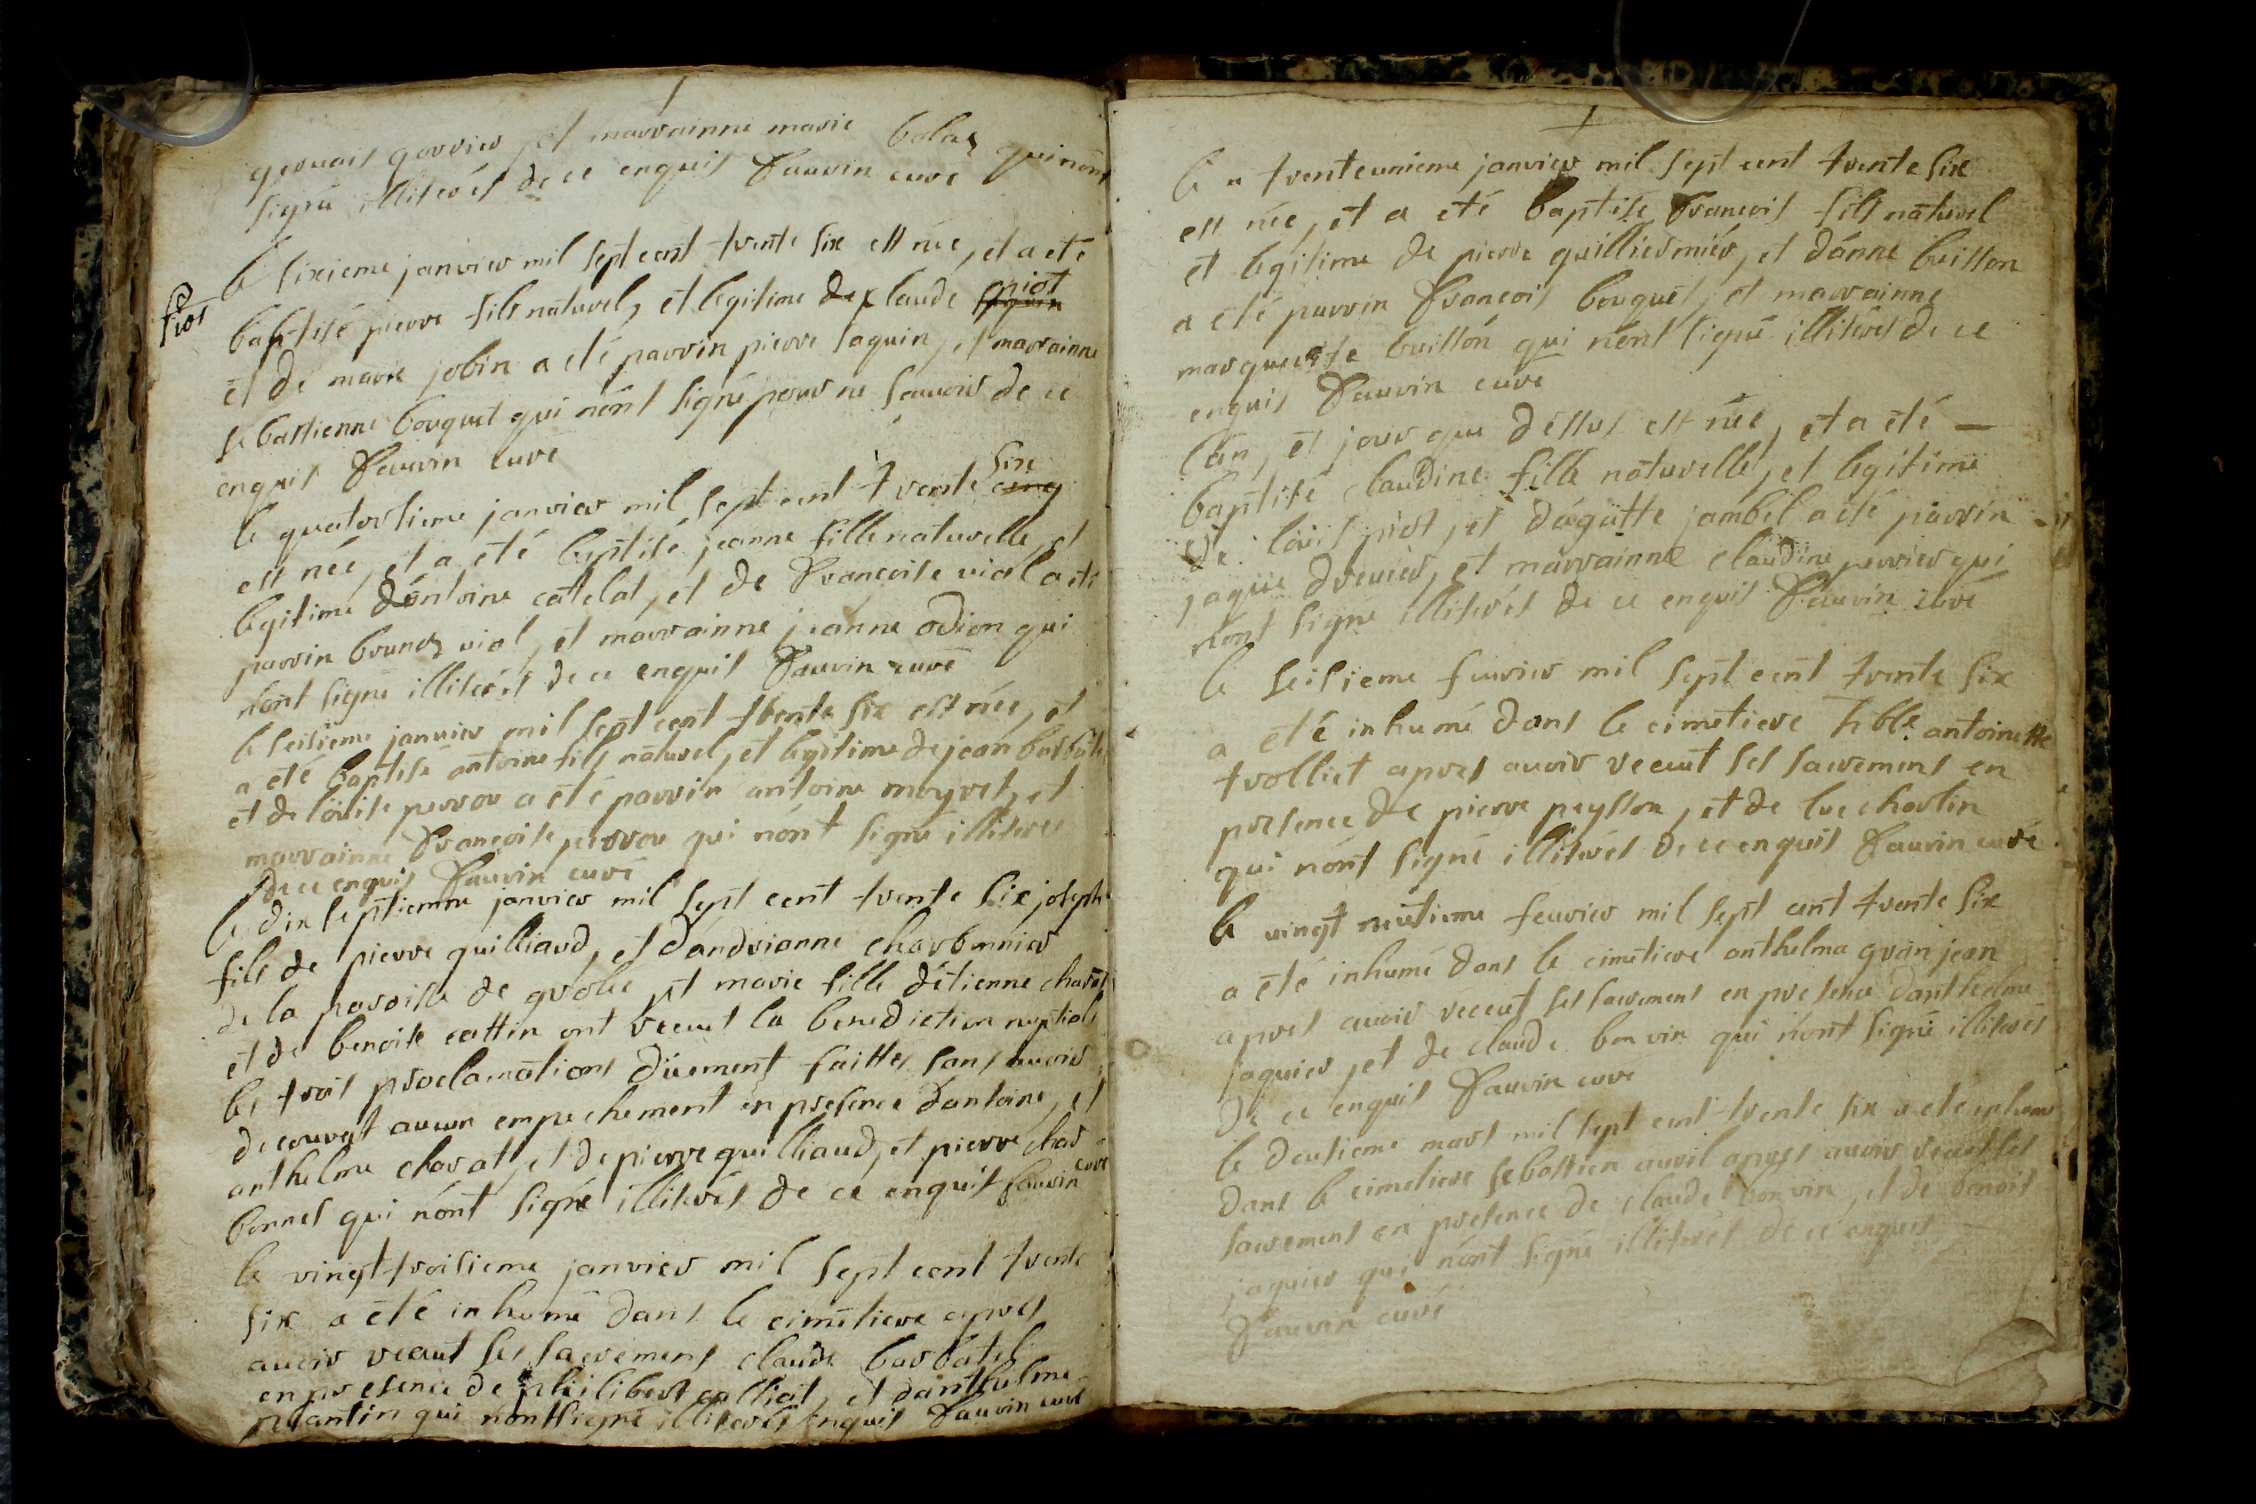 gervais gorrier, et marrainne marie bolaz qui nont
signé illiterés de ce enquis Fauvin curé
le sixieme janvier mil sept cent trente six est née, et a eté
piot
baptisé pierre fils naturel, et legitime de claude piot
et de marie jobin a eté parrin pierre jaquin, et marrainne
sebastienne bouquet qui nónt signé pour ne sauoir de ce
enquis Fauvin curé
le quatorsieme janvier mil sept cent trente six
est née, et a eté baptisé jeanne fille naturelle, et
legitime dántoine catelat, et de Françoise vial a eté
parrin brunoz vial, et marrainne jeanne odion qui
nónt signé illiterés de ce enquis Fauvin curé
le seisieme janvier mil sept cent trente six est née, et
a eté baptisé antoine fils naturel, et legitime de jean barbatel
et de loüise perrou a eté parrin antoine moyret, et
marrainne Françoise perrou qui nónt signé illiteres
de ce enquis Fauvin curé
le dix septiemme janvier mil sept cent trente six joseph
fils de pierre guilliaud, et dandrianne charbonnier
de la paroisse de grolée, et marie fille détienne charat
et de benoite cattin ont receut la benediction nuptiale
les trois proclamations düement faittes sans auoir
decouvert aucun empechement en presence dantoine, et
anthelme charat, et de pierre guilliaud, et pierre char
bonnet qui nónt signé illiterés de ce enquis fauvin curé
le vingt troisieme janvier mil sept cent trente
six a eté inhumé dans le cimetiere apres
auoir receut ses sacremens claude barbatel
en presence de philibert galliait, et danthelme
plantin qui nont signé illiterés enquis Fauvin curé
le trenteunieme janvier mil sept cent trente six
est née, et a eté baptisé François fils naturel
et legitime de pierre guilliermier, et dánne buisson
a eté parrin François bouquet, et marrainne
marguerite buissón qui nónt signé illiterés de ce
enquis Fauvin curé
lán, et jour que dessus est née, et a eté
baptisé claudine fille naturelle, et legitime
de loüis piot, et dágatte jambel a eté parrin
jaque drevier, et marrainne claudine perrier qui
nónt signé illiterés de ce enquis Fauvin curé
le seisieme feuvrier mil sept cent trente six
a eté inhumé dans le cimetiere hble antoinette
trolliet apres auoir receut ses sacremens en
presence de pierre peysson, et de luc charlin
qui nónt signé illiterés de ce enquis Fauvin curé
le vingt neutieme feuvrier mil sept cent trente six
a eté inhumé dans le cimetiere anthelma gran jean
apres auoir receut ses sacremens en presence danthelme
jaquier, et de claude bonvin qui nónt signé illiterés
de ce enquis Fauvin curé
le deutieme mars mil sept cent trente six a eté inhumé
dans le cimetiere sebastien auril apres auoir receut les
sacremens en presence de claude bonvin, et de benoit
jaquier qui nónt signé illiterés de ce enquis
Fauvin curé